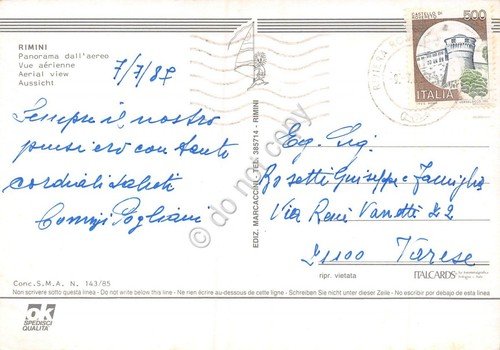 RIMINI
Panorama dall'aereo
Vue aérienne
Aerial view
Aussicht
7/7/87
Sempre il nostro
pensiero con tanto
cordiali saluti
Coniugi Pogliani
Conc. S.M.A. N. 143/85
Non scrivere sotto questa linea - Do not write below this line - Ne rien écrire au-dessous de cette ligne - Schreiben Sie nicht unter dieser Zeile - No escribir por debajo de esta linea
ok
SPEDISCI
QUALITA'
EDIZ. MARCACCINI TEL. 385714 - RIMINI
© do not copy
500
ITALIA
Eg. Sig.
Rosetti Giuseppe e Famiglia
Via René Vanetti 22
21100 Varese
ripr. vietata
ITALCARDS